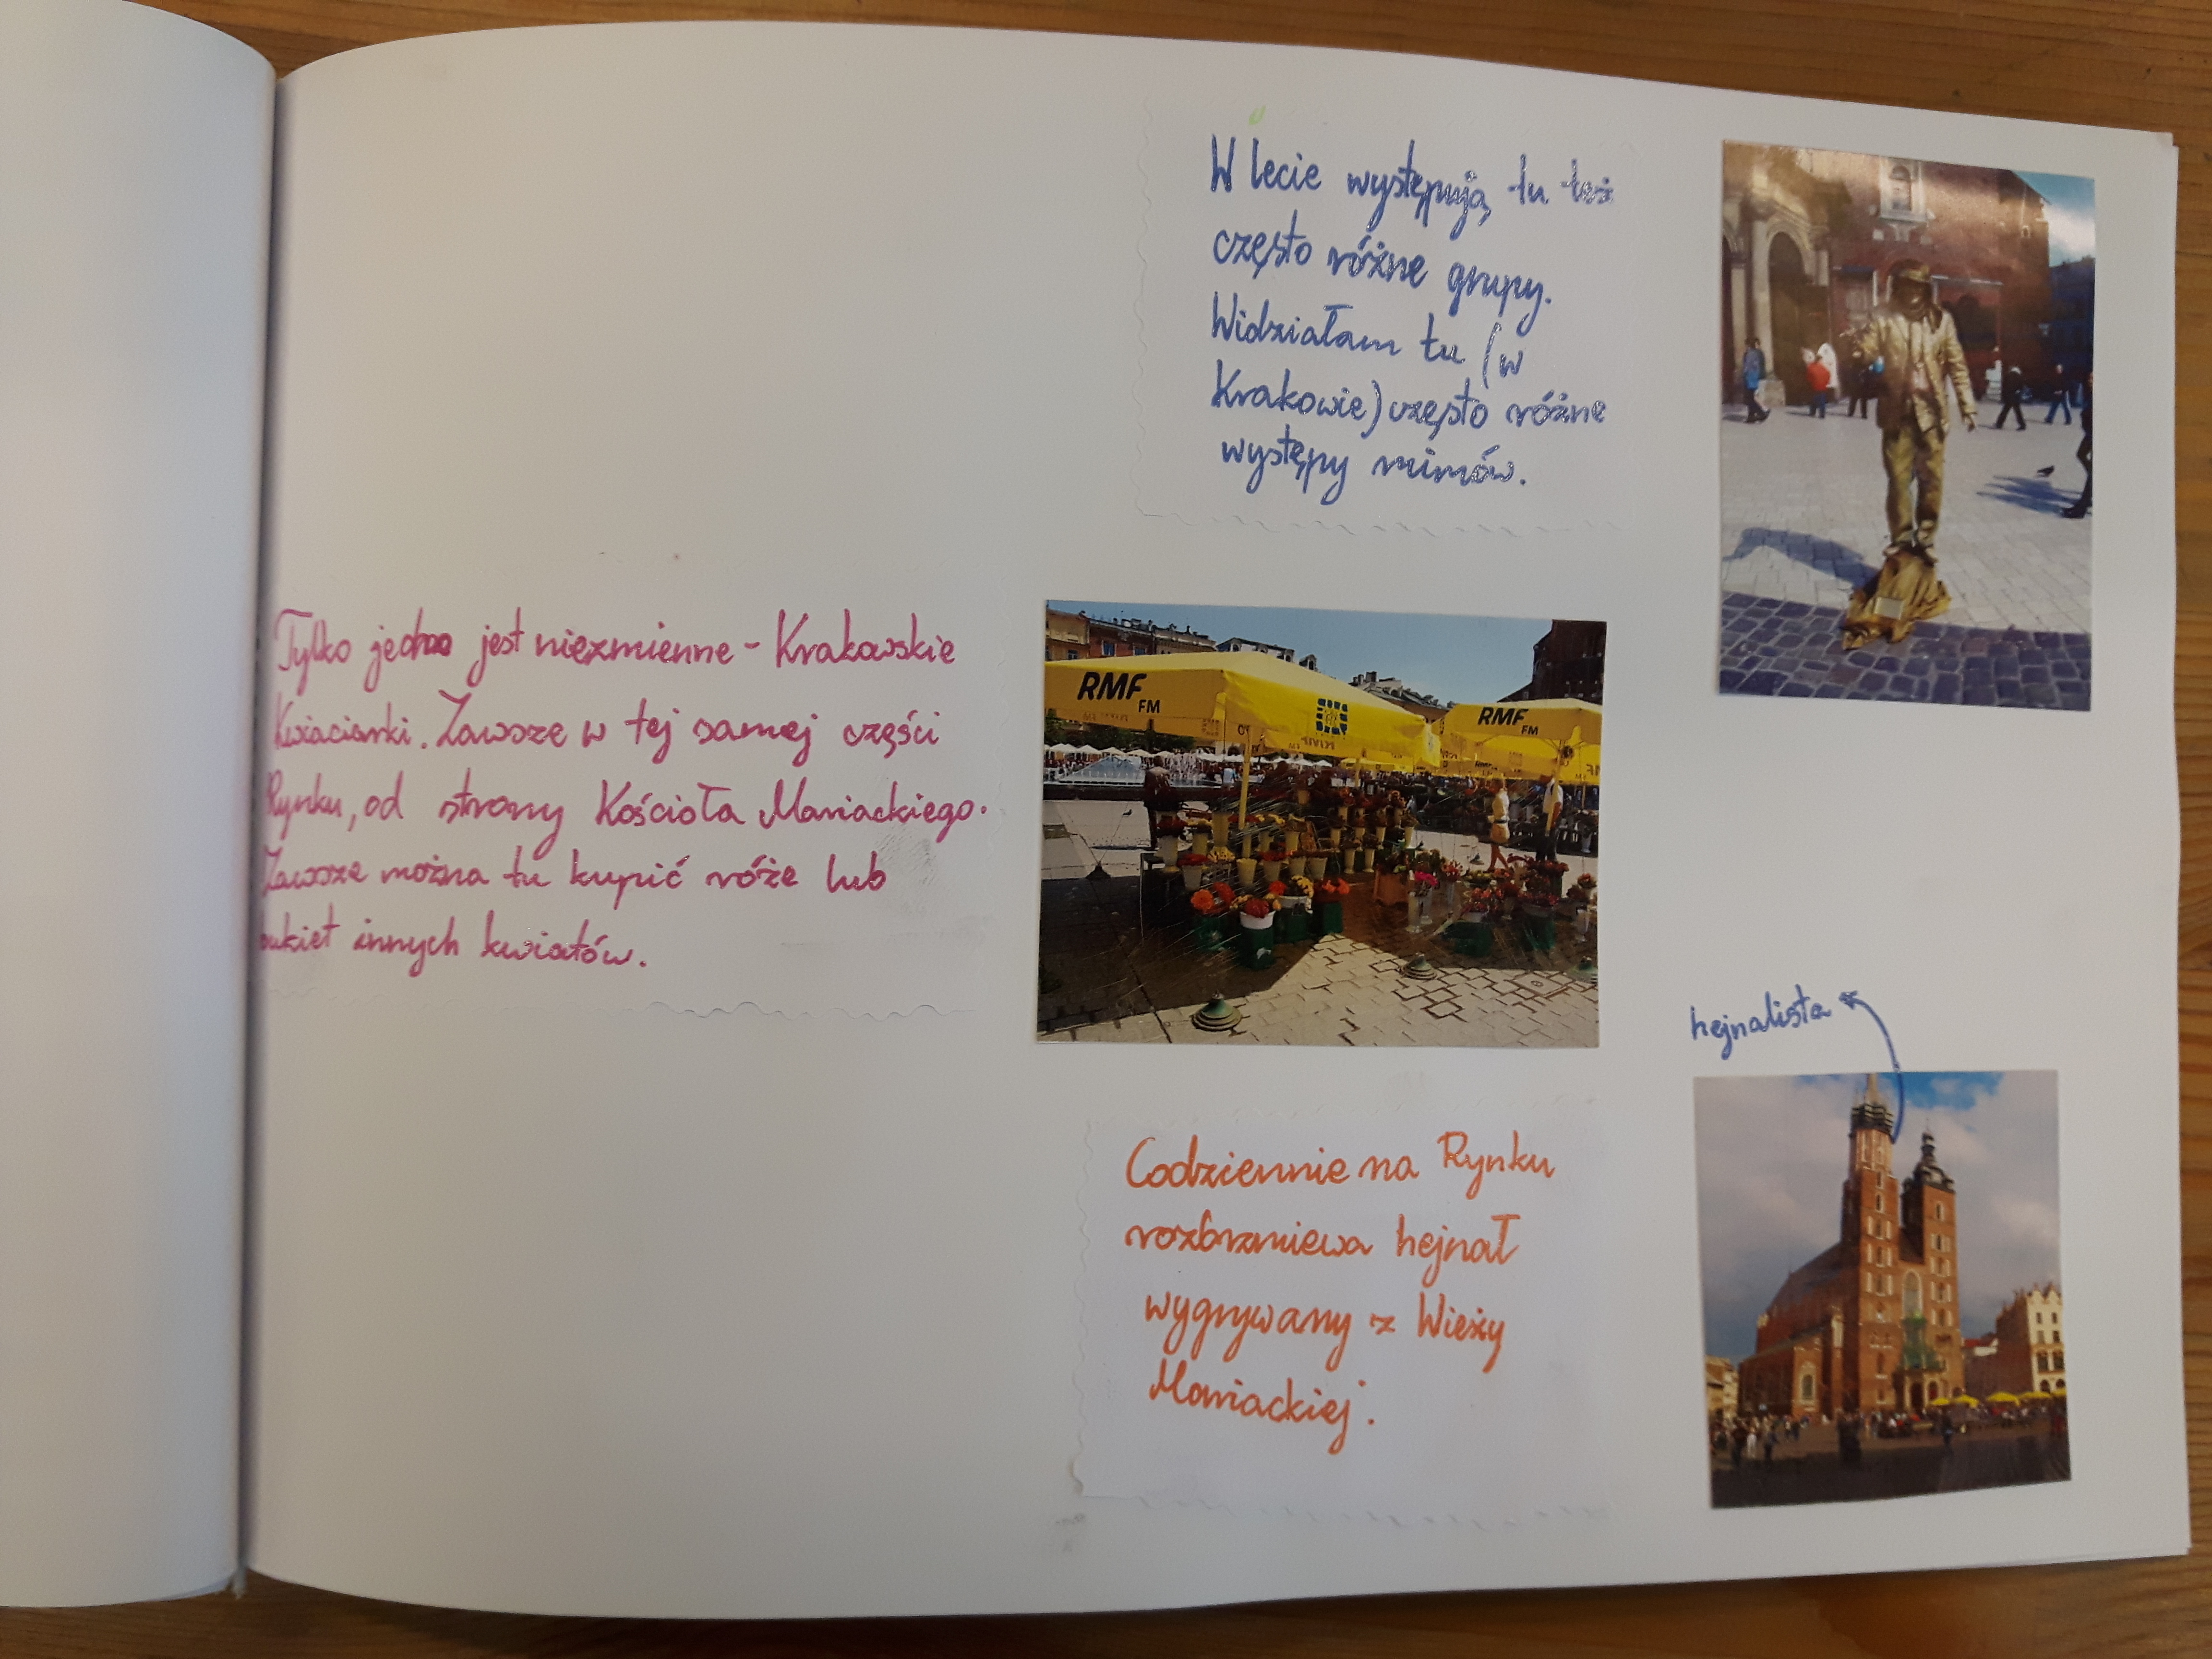 W lecie występują tu też
często różne grupy.
Widziałam tu (w
Krakowie) często różne
występy mimów.
Tylko jedno jest niezmienne - Krakowskie
Kwiaciarki. Zawsze w tej samej części
Rynku, od strony Kościoła Mariackiego.
Zawsze można tu kupić róże lub
bukiet innych kwiatów.
RMF
FM
RMF
FM
hejnalista
Codziennie na Rynku
rozbrzmiewa hejnał
wygrywany z Wieży
Mariackiej.